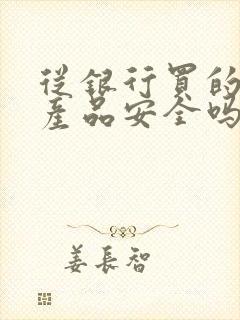 從銀行買的
產品安全嗎
姜長智